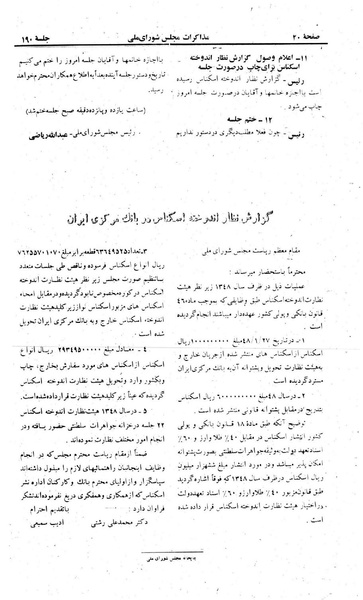 صفحهٔ ۲۰
مذاکرات مجلس شورای ملی
جلسه ۱۹۰
۱۱ـ اعلام وصول گزارش نظار اندوخته
اسکناس برای چاپ در صورت جلسه
رئیس ـ گزارش نظار اندوخته اسکناس رسیده
است با اجازه خانمها و آقایان در صورت جلسه امروز
چاپ میشود.
۱۲ـ ختم جلسه
رئیس ـ چون فعلا مطلب دیگری در دستور نداریم
با اجازه خانمها و آقایان جلسه امروز را ختم میکنیم
تاریخ و دستور جلسه آینده بعداً به اطلاع همکاران محترم خواهد
رسید.
(ساعت یازده و پانزده دقیقه صبح جلسه ختم شد)
رئیس مجلس شورای ملی ـ عبدالله ریاضی
گزارش نظار اندوخته اسکناس در بانک مرکزی ایران
مقام معظم ریاست مجلس شورای ملی
محترماً باستحضار میرساند:
عملیات ذیل در ظرف سال ۱۳۴۸ زیر نظر هیئت
نظارت اندوخته اسکناس طبق وظایفی که بموجب ماده ۴۶
قانون بانکی و پولی کشور عهده‌دار میباشند انجام گردیده
است.
۱ـ در تاریخ ۴۸/۱/۲۷ مبلغ ریال
اسکناس از اسکناس های منتشر شده از جریان خارج و
به هیئت نظارت تحویل و پشتوانه آن به بانک مرکزی ایران
مسترد گردیده است.
۲ـ در سال ۴۸ مبلغ ریال اسکناس
بتدریج در مقابل پشتوانه قانونی منتشر شده است.
توضیح آنکه طبق ماده ۱۸ قانون بانکی و پولی
کشور انتشار اسکناس در مقابل ۴۰٪ طلا و ارز و ۶۰٪
اسناد تعهد دولت بوثیقه جواهرات سلطنتی بصورت پشتوانه
امکان پذیر میباشد و در مورد انتشار مبلغ ششهزار میلیون
ریال اسکناس در ظرف سال ۱۳۴۸ که فوقاً اشاره گردید
طبق قانون مزبور ۴۰٪ طلا و ارز و ۶۰٪ اسناد تعهد دولت
در اختیار هیئت نظارت اندوخته اسکناس قرار داده شده
است.
۳ـ تعداد ۶۳۶۴۹۵۲۵ قطعه برابر مبلغ ۷۶۲۵۵۷۰۱۰۷۰
ریال انواع اسکناس فرسوده و ناقص طی جلسات متعدد
با تنظیم صورت مجلس زیر نظر هیئت نظارت اندوخته
اسکناس در کوره مخصوص نابود گردیده و در مقابل امحاء
اسکناس های مزبور اسکناس نو از زیر کلید هیئت نظارت
اندوخته اسکناس خارج و به بانک مرکزی ایران تحویل
شده است.
۴ـ معادل مبلغ ریال انواع
اسکناس از اسکناس های مورد سفارش بخارج، چاپ
و بکشور وارد و تحویل هیئت نظارت اندوخته اسکناس
گردیده که عیناً زیر کلید هیئت نظارت قرار داده شده است.
۵ـ در سال ۱۳۴۸ هیئت نظارت اندوخته اسکناس
۲۲ جلسه در خزانه جواهرات سلطنتی حضور یافته و در
انجام امور مختلف نظارت نموده‌اند.
ضمناً از مقام ریاست محترم مجلس که در انجام
وظایف اینجانبان راهنمائیهای لازم را مبذول داشته‌اند
سپاسگزار و از اولیای محترم بانک و کارکنان اداره نشر
اسکناس که از همکاری و همفکری دریغ نفرموده‌اند تشکر
فراوان دارد. با تقدیم احترام
دکتر محمدعلی رشتی ادیب سمیعی
چاپخانه مجلس شورای ملی